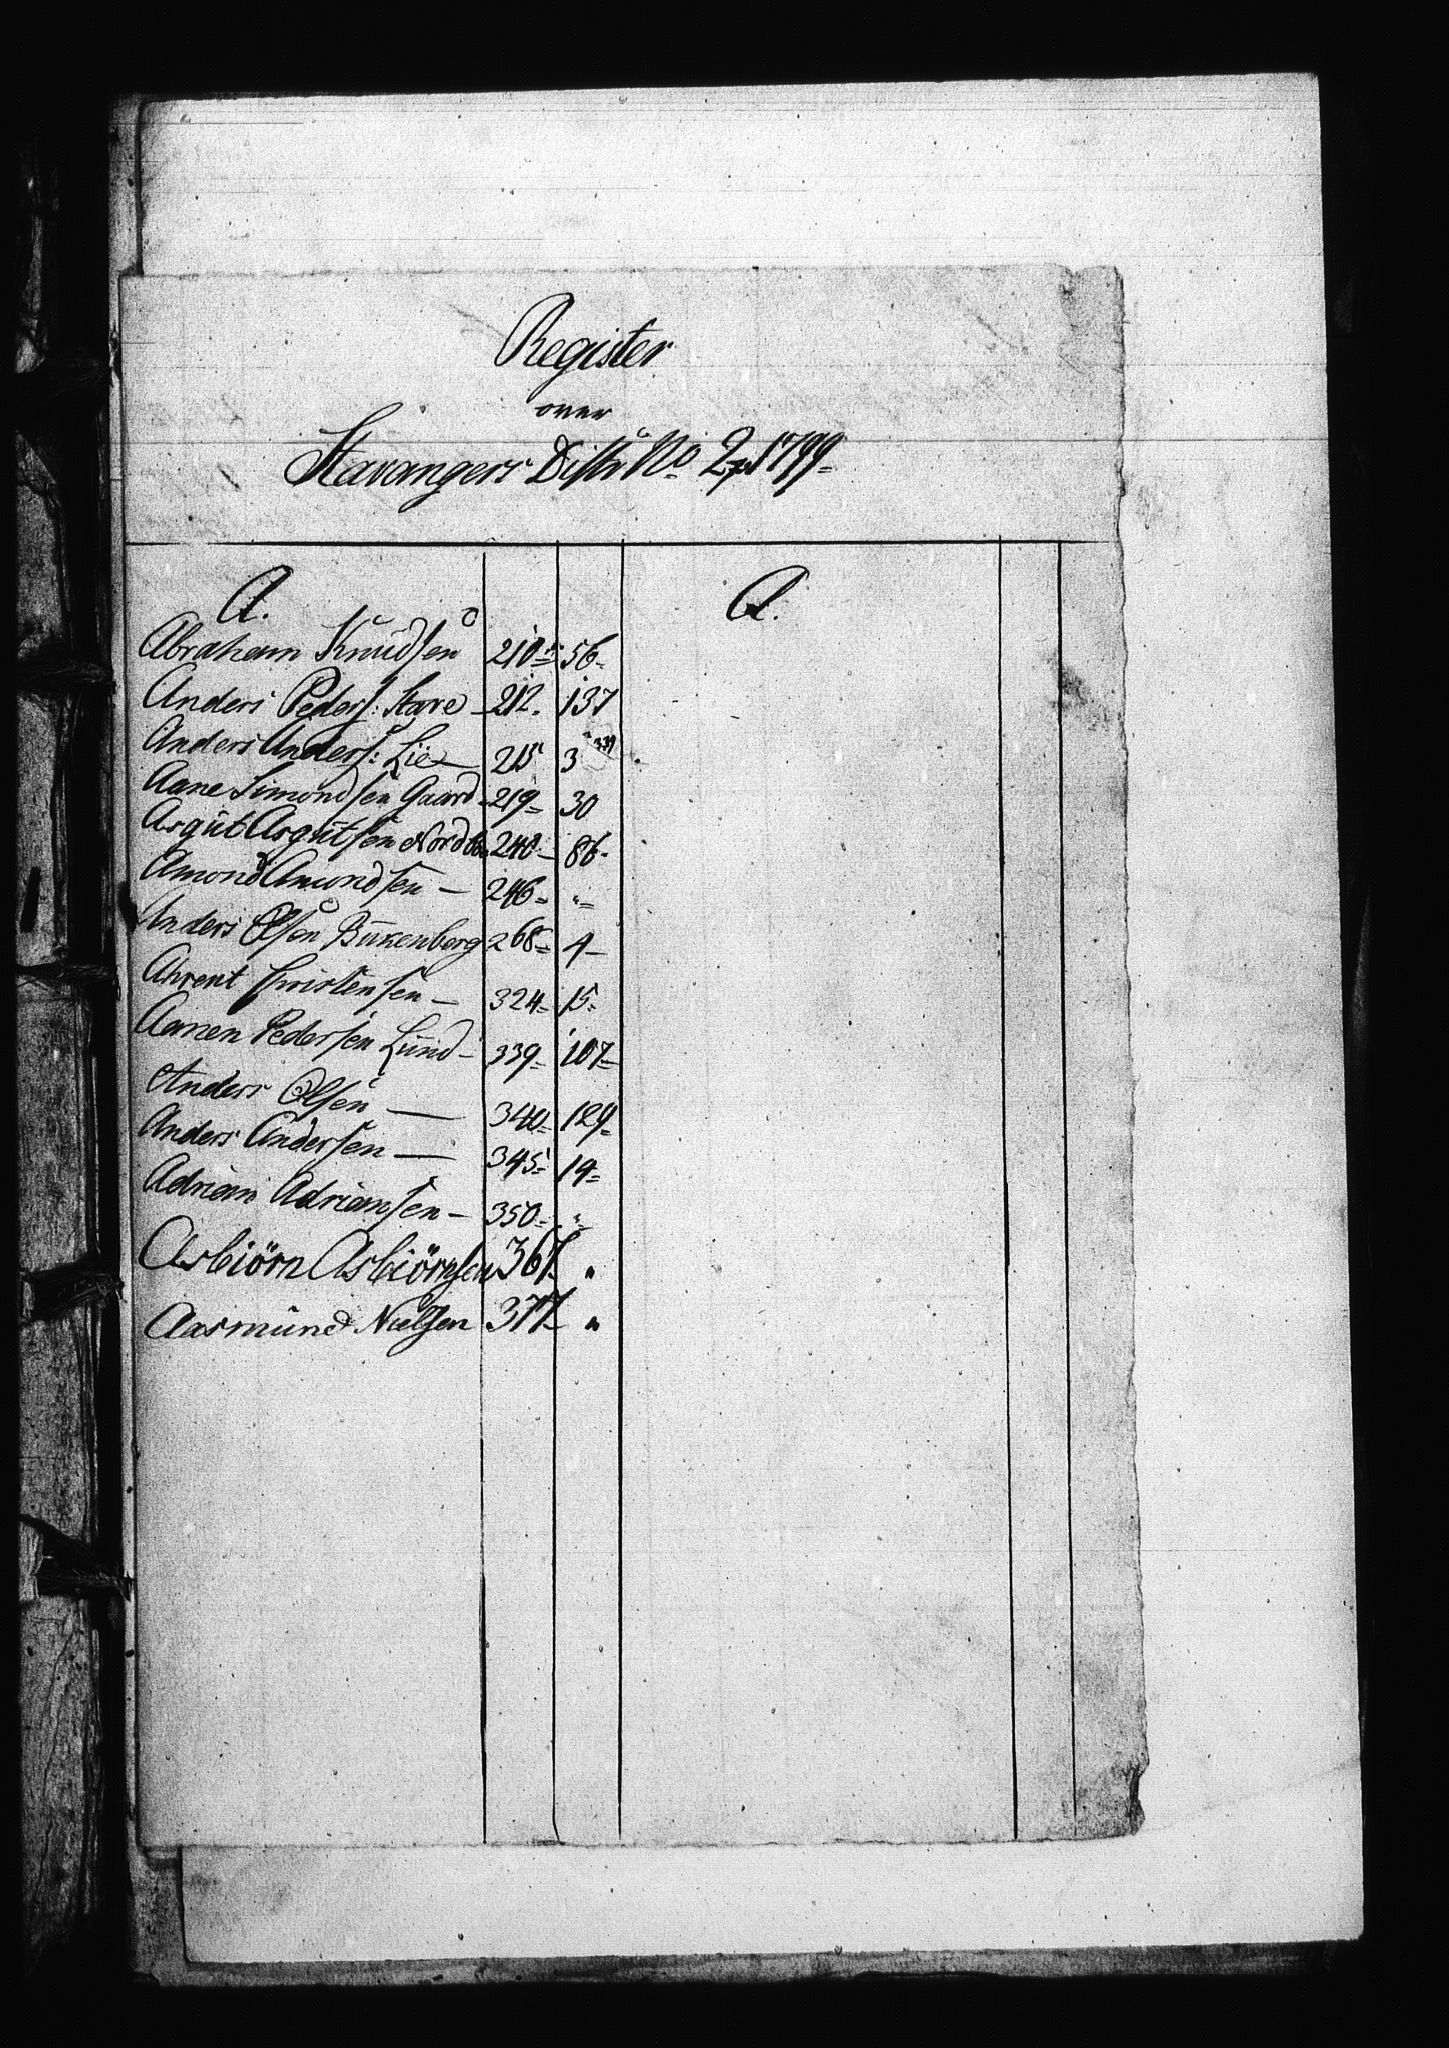 Register
over
Stavangers Distr: No 2, 1799
A.
Abraham Knudsen 210 56
Anders Peders: Stave 212 137
Anders Anders: Lie 215 3 339
Aane Simondsen Gaard 219 30
Asgut Asgutsen 240 86
Amond Amondsen 246 "
Anders Olsen 268 4
Ahrent Christensen 324 15
Aanen Pedersen Lund 339 107
Anders Olsen 340 129
Anders Andersen 345 14
Adrian Adriansen 350 "
Asbiörn Asbiörnsen 367 "
Aasmund Nielsen 377 "
A.